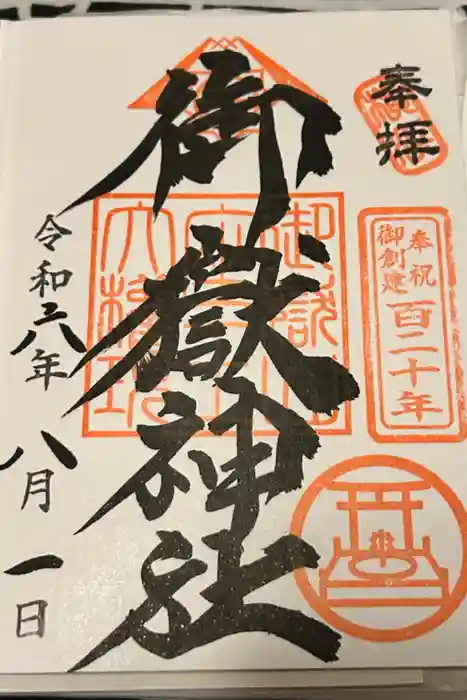 奉拝
奉祝
御創建
百二十年
御嶽神社
令和六年
八月
一日